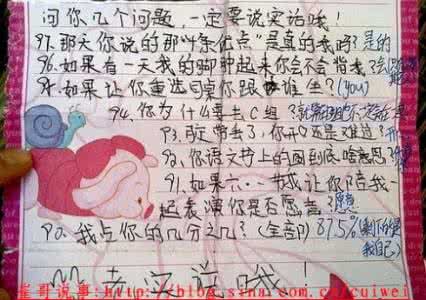 问你几个问题,一定要说实话哦!
97.那天你说的那"4条优点"是真的我吗?是的
96.如果有一天我的脚肿起来你会不会背我?会
95.如果让你重选同桌你跟谁坐?(you)
94.你为什么要去C组?
93.
92.你语文书上的图到底啥意思?
91.如果六·一节或让你陪我一
起表演你是否愿意?愿意
90.我占你的几分之几?(全部)87.5%(剩下的是
我自己)
老实说哦!
崔哥说事:http://blog.sina.com.cn/cuiwei